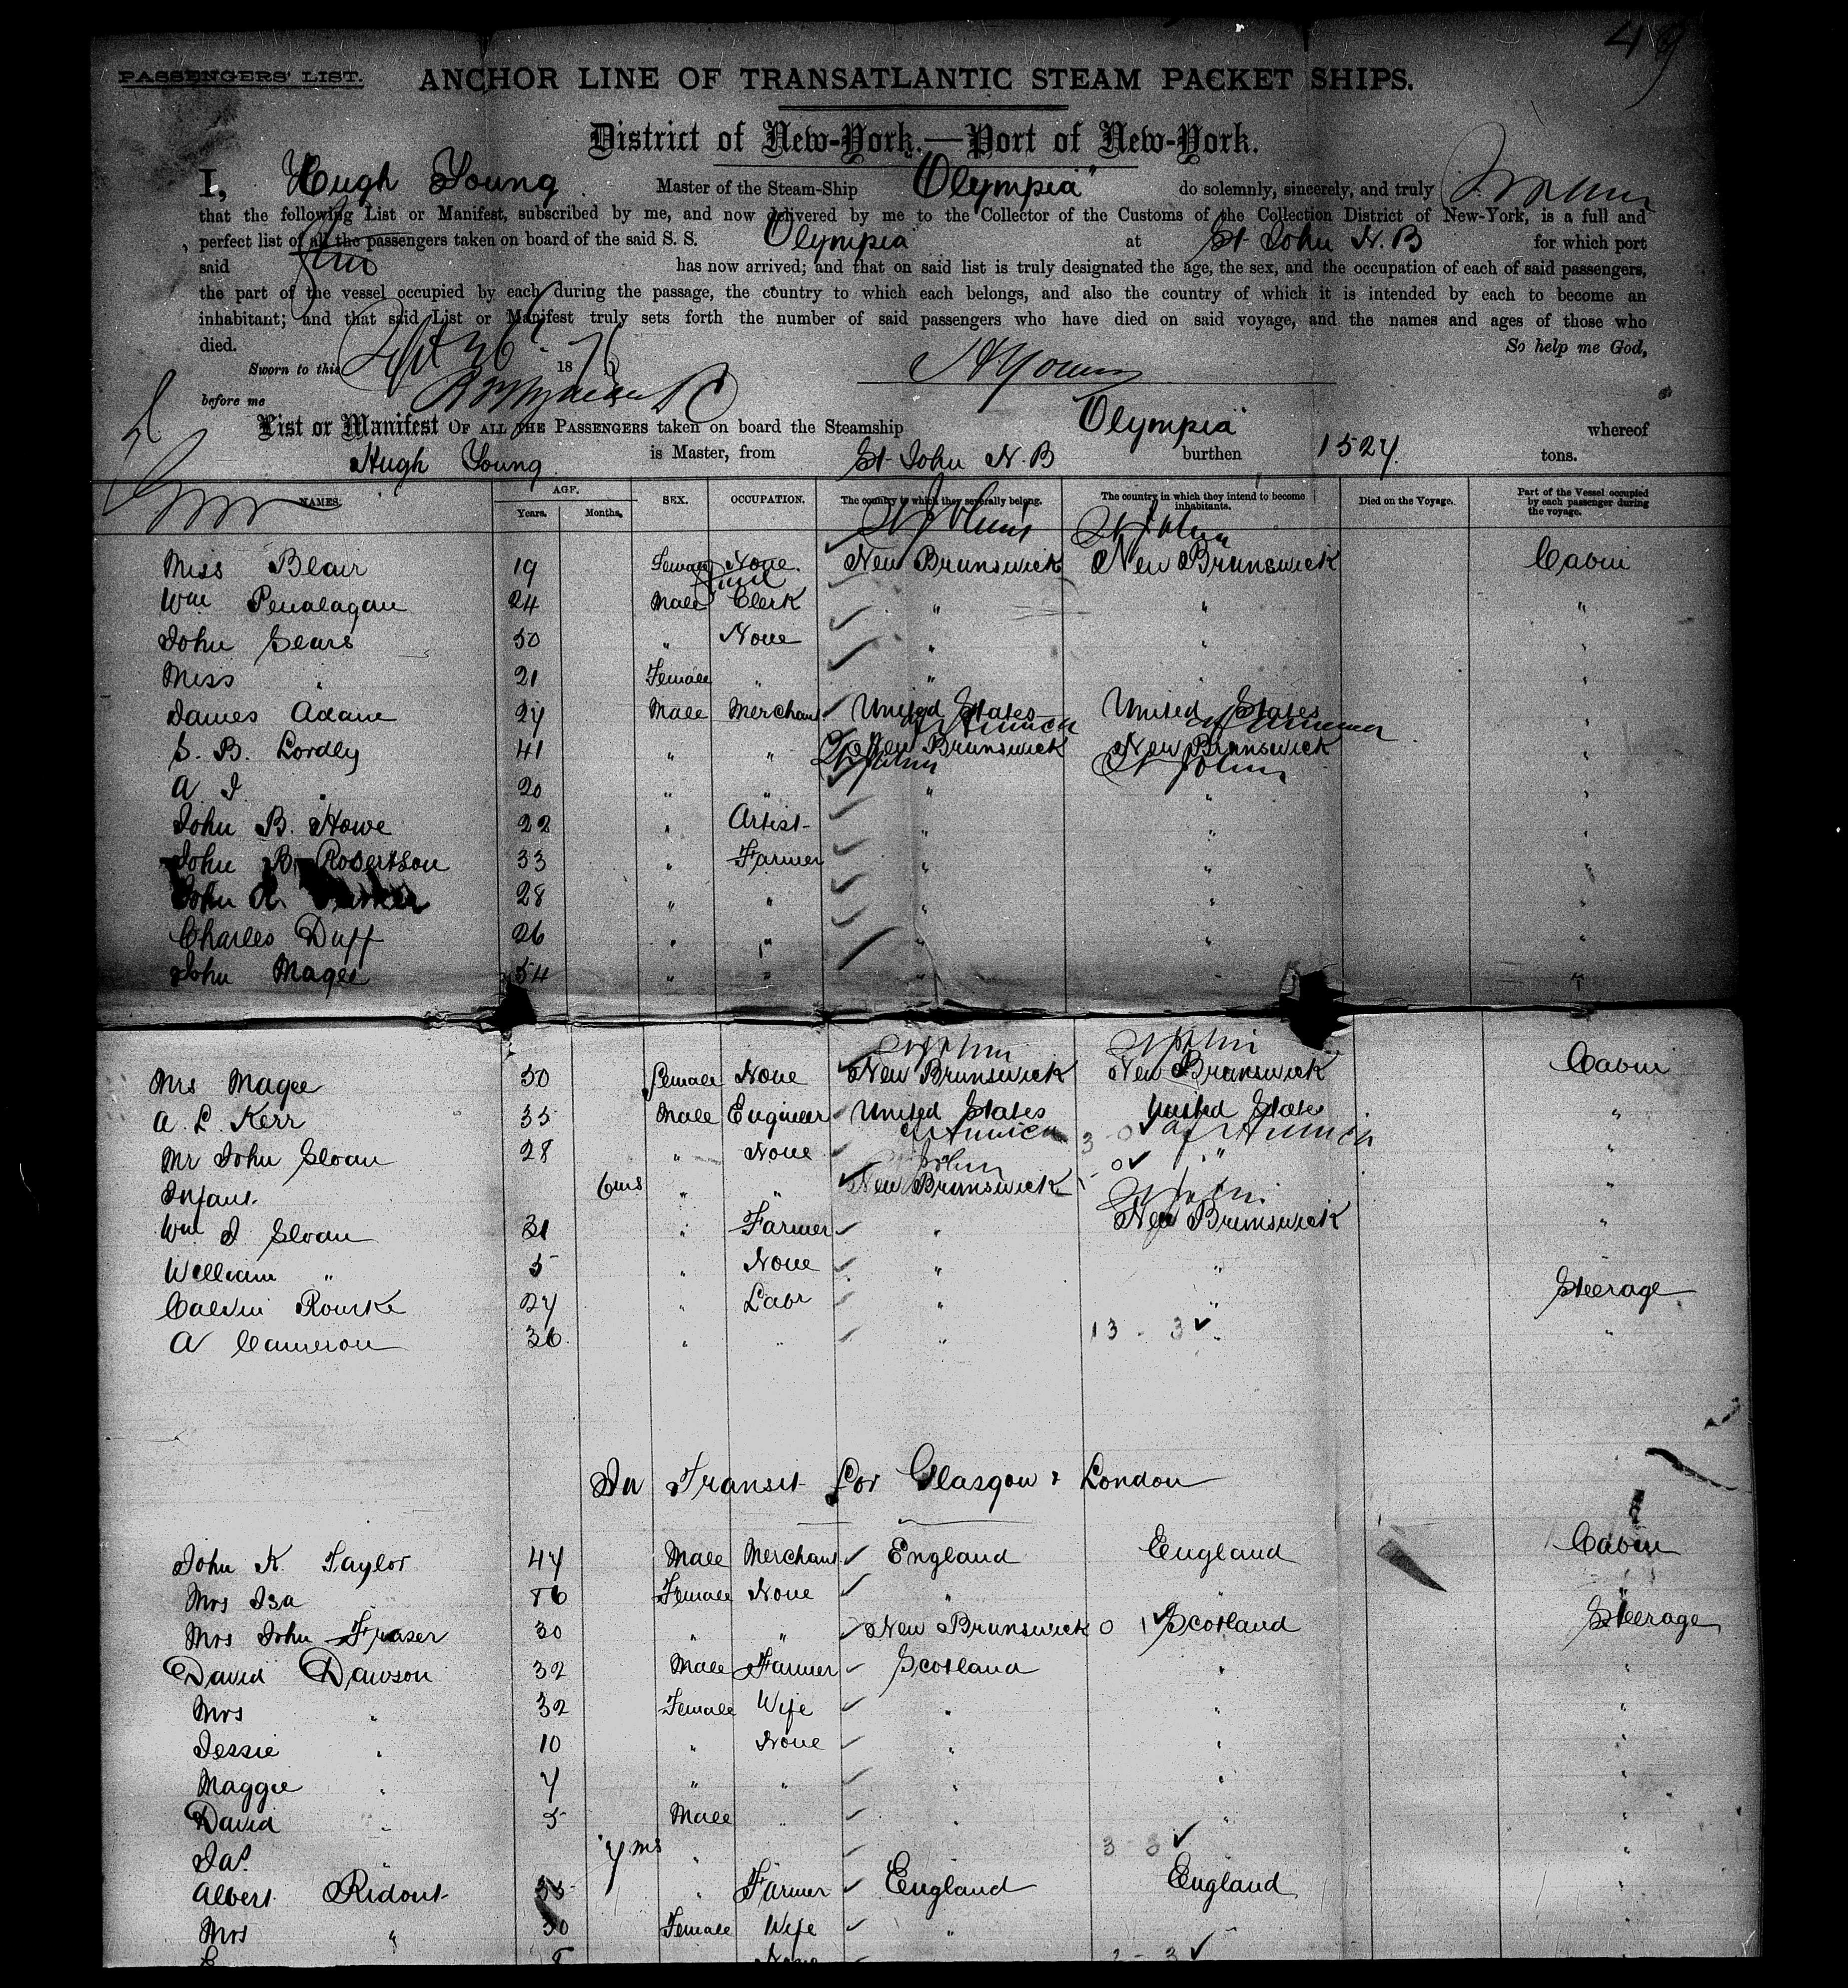 49
PASSENGERS' LIST. ANCHOR LINE OF TRANSATLANTIC STEAM PACKET SHIPS.
District of New-York.—Port of New-York.
I, Hugh Young Master of the Steam-Ship "Olympia" do solemnly, sincerely, and truly Swear
that the following List or Manifest, subscribed by me, and now delivered by me to the Collector of the Customs of the Collection District of New-York, is a full and
perfect list of all the passengers taken on board of the said S. S. Olympia at St John N. B for which port
said has now arrived; and that on said list is truly designated the age, the sex, and the occupation of each of said passengers,
the part of the vessel occupied by each during the passage, the country to which each belongs, and also the country of which it is intended by each to become an
inhabitant; and that said List or Manifest truly sets forth the number of said passengers who have died on said voyage, and the names and ages of those who
died. So help me God,
Sworn to this Sept 26 1876 H Young
before me
List or Manifest OF ALL THE PASSENGERS taken on board the Steamship Olympia whereof
Hugh Young is Master, from St John N. B burthen 1524 tons.
NAMES. AGE. Years. Months. SEX. OCCUPATION. The country to which they severally belong. The country in which they intend to become inhabitants. Died on the Voyage. Part of the Vessel occupied by each passenger during the voyage.
St Johns St John
Miss Blair 19 Female None New Brunswick New Brunswick Cabin
Wm 24 Male Clerk " " "
John Sears 50 " None " " "
Miss " 21 Female " " "
James Adam 27 Male Merchant United States United States "
of America of America
S. B. Lordly 41 " " New Brunswick New Brunswick
St John St John
A. J. " 20 " " " " "
John B. Howe 22 " Artist " " "
John B Robertson 33 " Farmer " " "
John 28 " " " " "
Charles Duff 26 " " " " "
John Magee 54 " " " " "
St John St John
Mrs Magee 50 female None New Brunswick New Brunswick Cabin
A. L. Kerr 35 Male Engineer United States United States "
of America of America
Mr John Sloan 28 " None " "
St John
Infant 6ms " " New Brunswick "
St John
Wm J Sloan 31 " Farmer " New Brunswick "
William " 5 " None " "
Calvin Rourke 27 " Labr " " Steerage
A Cameron 36 " " " 13 - 3 "
In Transit for Glasgow & London
John K Taylor 47 Male Merchant England England Cabin
Mrs Isa Female None " " "
Mrs John Fraser 30 " " New Brunswick 0 1 Scotland Steerage
David Dawson 32 Male Farmer Scotland " "
Mrs " 32 Female Wife " " "
Jessie " 10 " None " " "
Maggie " 7 " " " " "
David " 5 Male " " " "
Jas. " 7 ms " 3 3 "
Albert Ridout Farmer England England "
Mrs " 30 Female Wife " " "
8 None 2 - 3